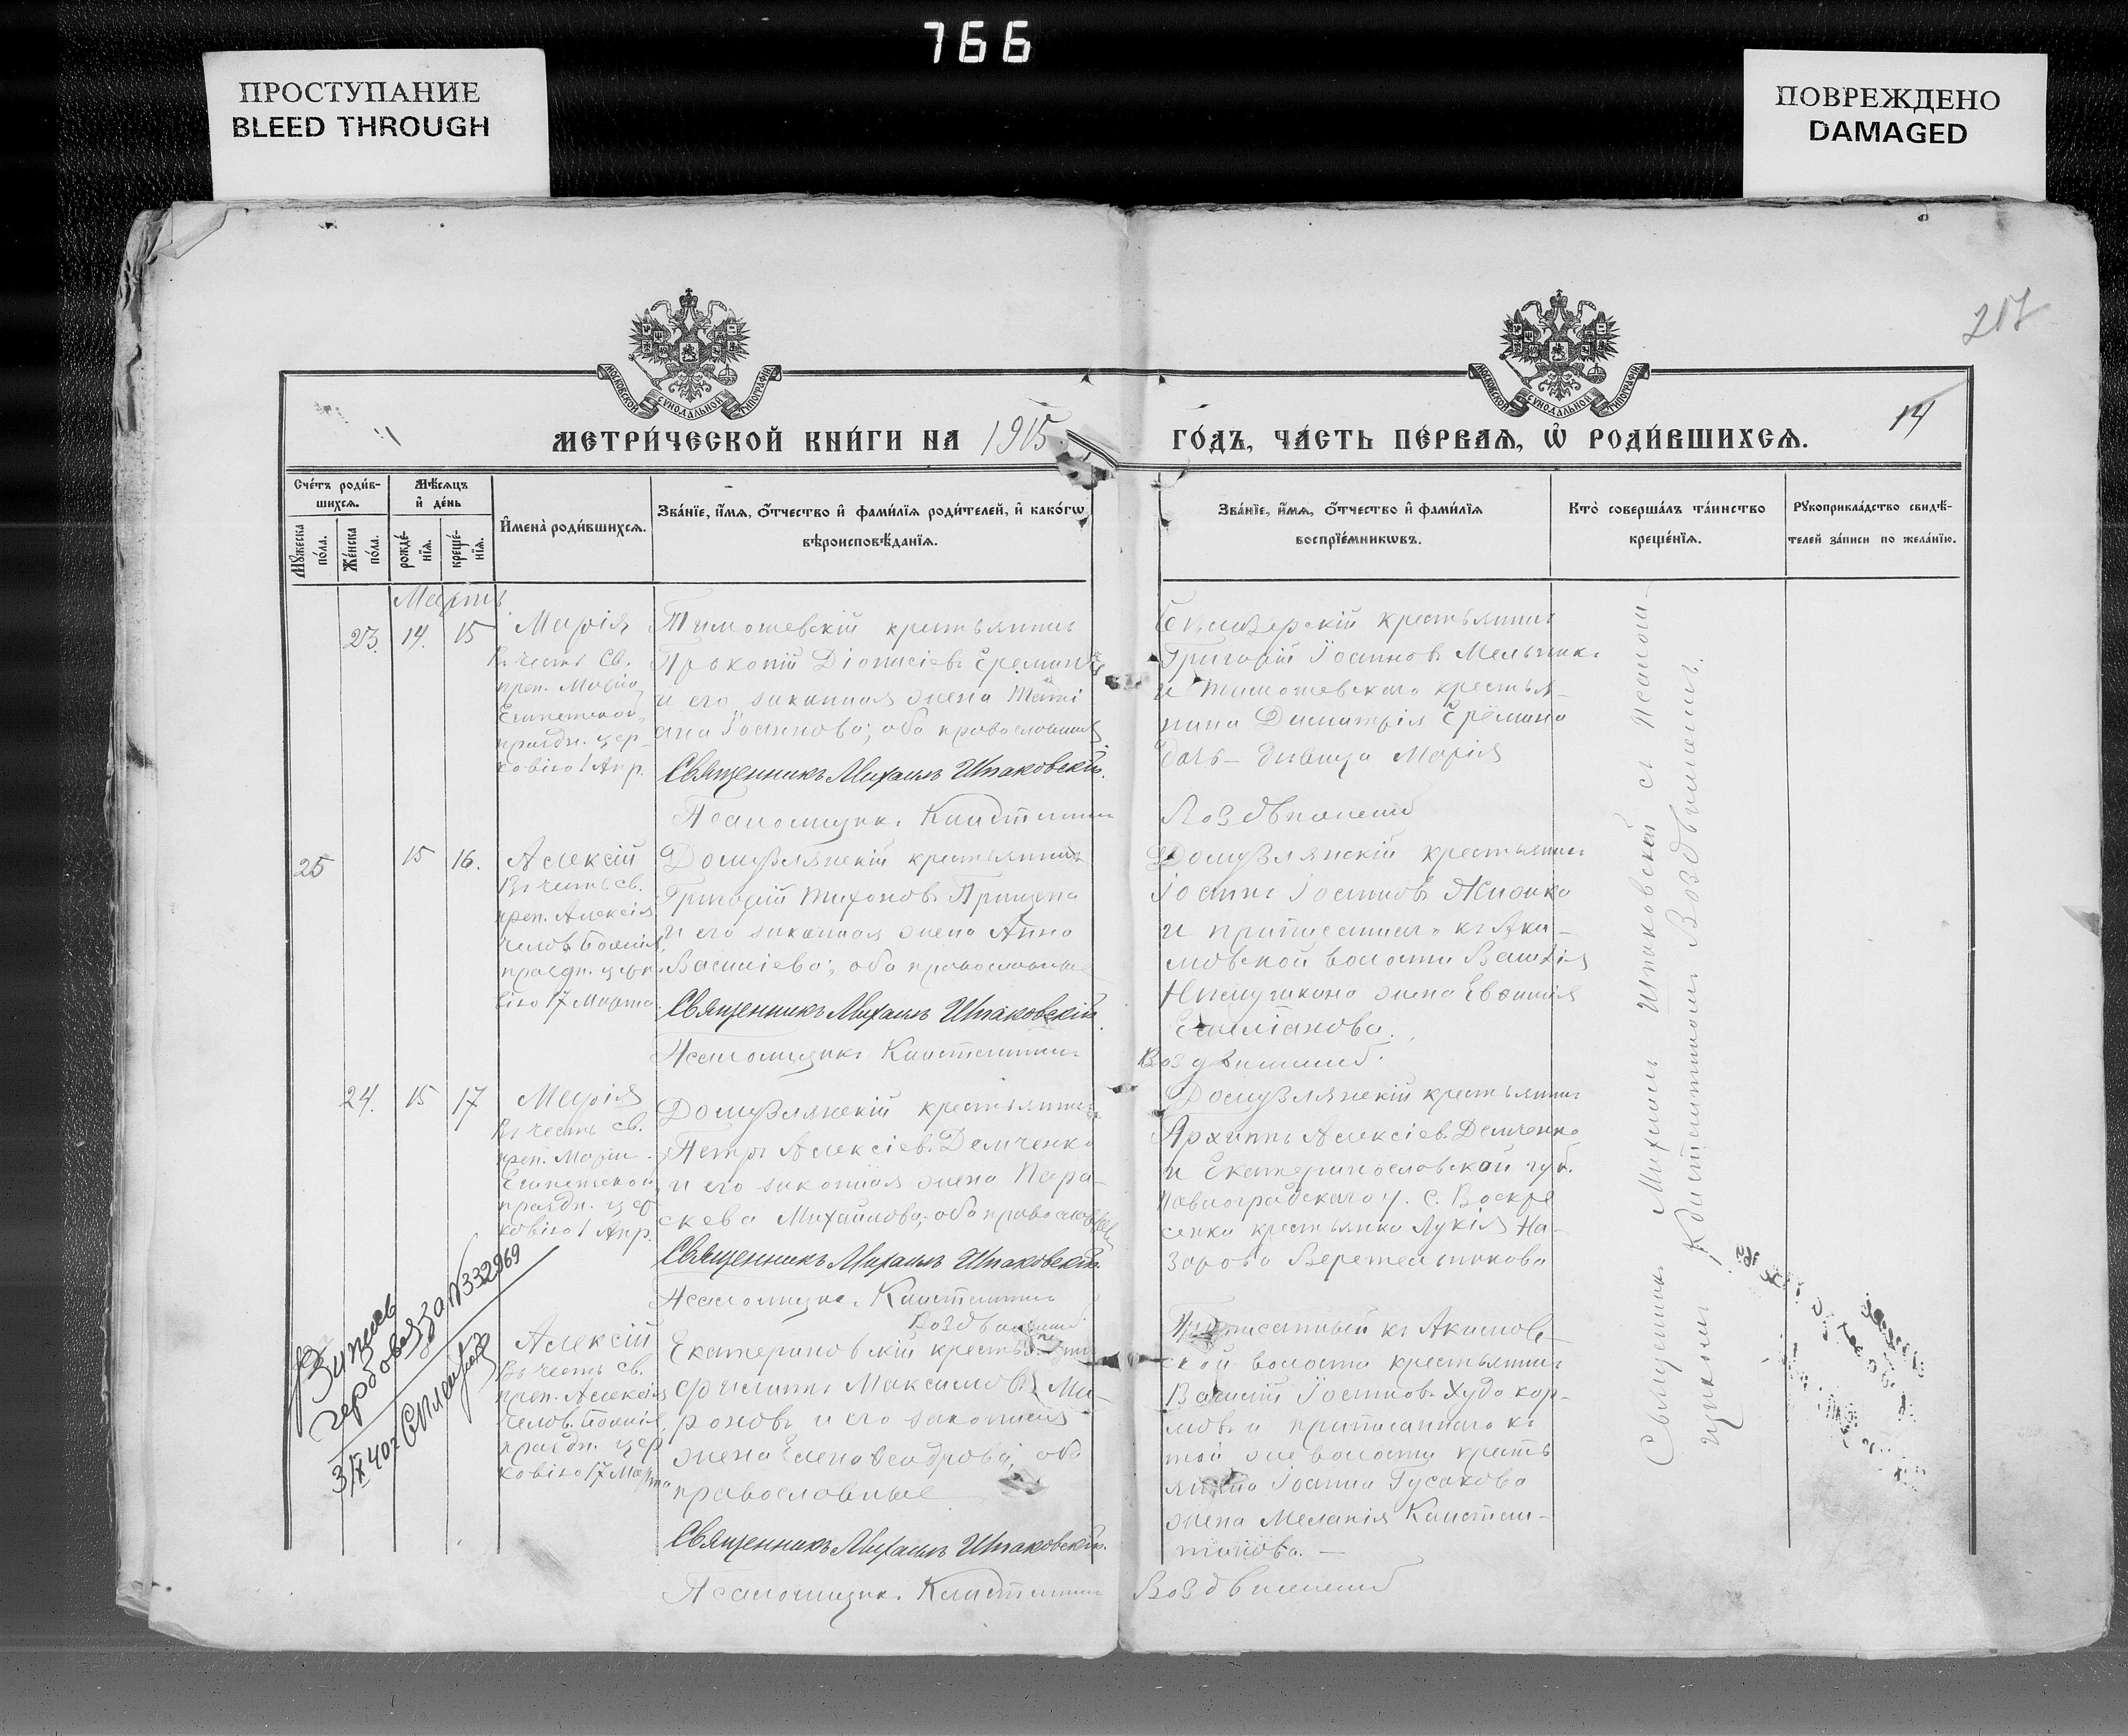 766
ПРОСТУПАНИЕ
BLEED THROUGH
ПОВРЕЖДЕНО
DAMAGED
МОСКОВСКОЙ СУНОДАЛЬНОЙ ТИПОГРАФІИ
МОСКОВСКОЙ СУНОДАЛЬНОЙ ТИПОГРАФІИ
14
МЕТРИ́ЧЕСКОЙ КНИ́ГИ НА 1915
ГО́ДЪ, ЧА́СТЬ ПЕ́РВАѦ, Ѡ҆ РОДИ́ВШИХСѦ.
Сче́тъ роди́в-
шихсѧ.
Мѣ́сѧцъ
и҆ де́нь
Мꙋ́жеска
по́ла.
Же́нска
по́ла.
рожде́-
нїѧ.
креще́-
нїѧ.
И҆мена̀ роди́вшихсѧ.
Зва́нїе, и҆́мѧ, ѻ҆́тчество и҆ фами́лїѧ роди́телей, и҆ како́гѡ
вѣроисповѣ́данїѧ.
Зва́нїе, и҆́мѧ, ѻ҆́тчество и҆ фами́лїѧ
воспрїе́мникѡвъ.
Кто̀ соверша́лъ та́инство
креще́нїѧ.
Рꙋкоприкла́дство свидѣ́-
телей за́писи по жела́нїю.
Мартъ
23. 14. 15
Марія
Въ честь Св.
преп. Маріи
Египетской,
праздн. цер-
ковію 1 Апр.
Тимошевскій крестьянинъ
Прокопій Діонисіевъ Ереминъ
и его законная жена Тати
ана Іоаннова; оба православные
Священникъ Михаилъ Шпаковскій.
Псаломщикъ Константинъ
крестьянинъ
Григорій Іоанновъ Мельникъ
и Тимошевскаго крестья-
нина Димитрія Ерёмина
дочь - дѣвица Марія
Воздвиженскій
25 15 16.
Алексій
Въ честь св.
преп. Алексія
челов. Божія,
праздн. церк.
вію 17 Марта
Домузлянскій крестьянинъ
Григорій Тихоновъ Прищепа
и его законная жена Анна
Василіева; оба православные
Священникъ Михаилъ Шпаковскій.
Псаломщикъ Константинъ
Домузлянскій крестьянинъ
Іоаннъ Іоанновъ
и приписаннаго къ Аки-
мовской волости Василія
жена Евфимія
Емиліанова.
Воздвиженскій.
24. 15 17
Марія
Въ честь св.
преп. Маріи
Египетской,
праздн. цер
ковію 1 Апр.
Домузлянскій крестьянинъ
Петръ Алексіевъ Демченко
и его законная жена Пара-
скева Михаилова; оба православные
Священникъ Михаилъ Шпаковскій.
Псаломщикъ Константинъ
Воздвиженскій
Домузлянскій крестьянинъ
Архиппъ Алексіевъ Демченко
и Екатеринославской губ.
Павлоградскаго у. с. Воскре
сенки крестьянка Лукія На-
зарова Веретельникова
3/IX 40г
№332969
Алексій
Въ честь св.
преп. Алексія
челов. Божія,
праздн. цер
ковію 17 Марта
Екатериновскій крестьянинъ
Филиппъ Максимовъ Ми-
роновъ и его законная
жена Елена Ѳеодорова; оба
православные
Священникъ Михаилъ Шпаковскій.
Псаломщикъ Константинъ
Приписанный къ Акимов-
ской волости крестьянинъ
Василій Іоанновъ Худокор-
мовъ и приписаннаго къ
той же волости кресть
янина Іоанна Гусакова
жена Меланія Констан-
тинова. -
Воздвиженскій
Священникъ Михаилъ Шпаковскій съ Псалом-
щикомъ Константиномъ Воздвиженскимъ.